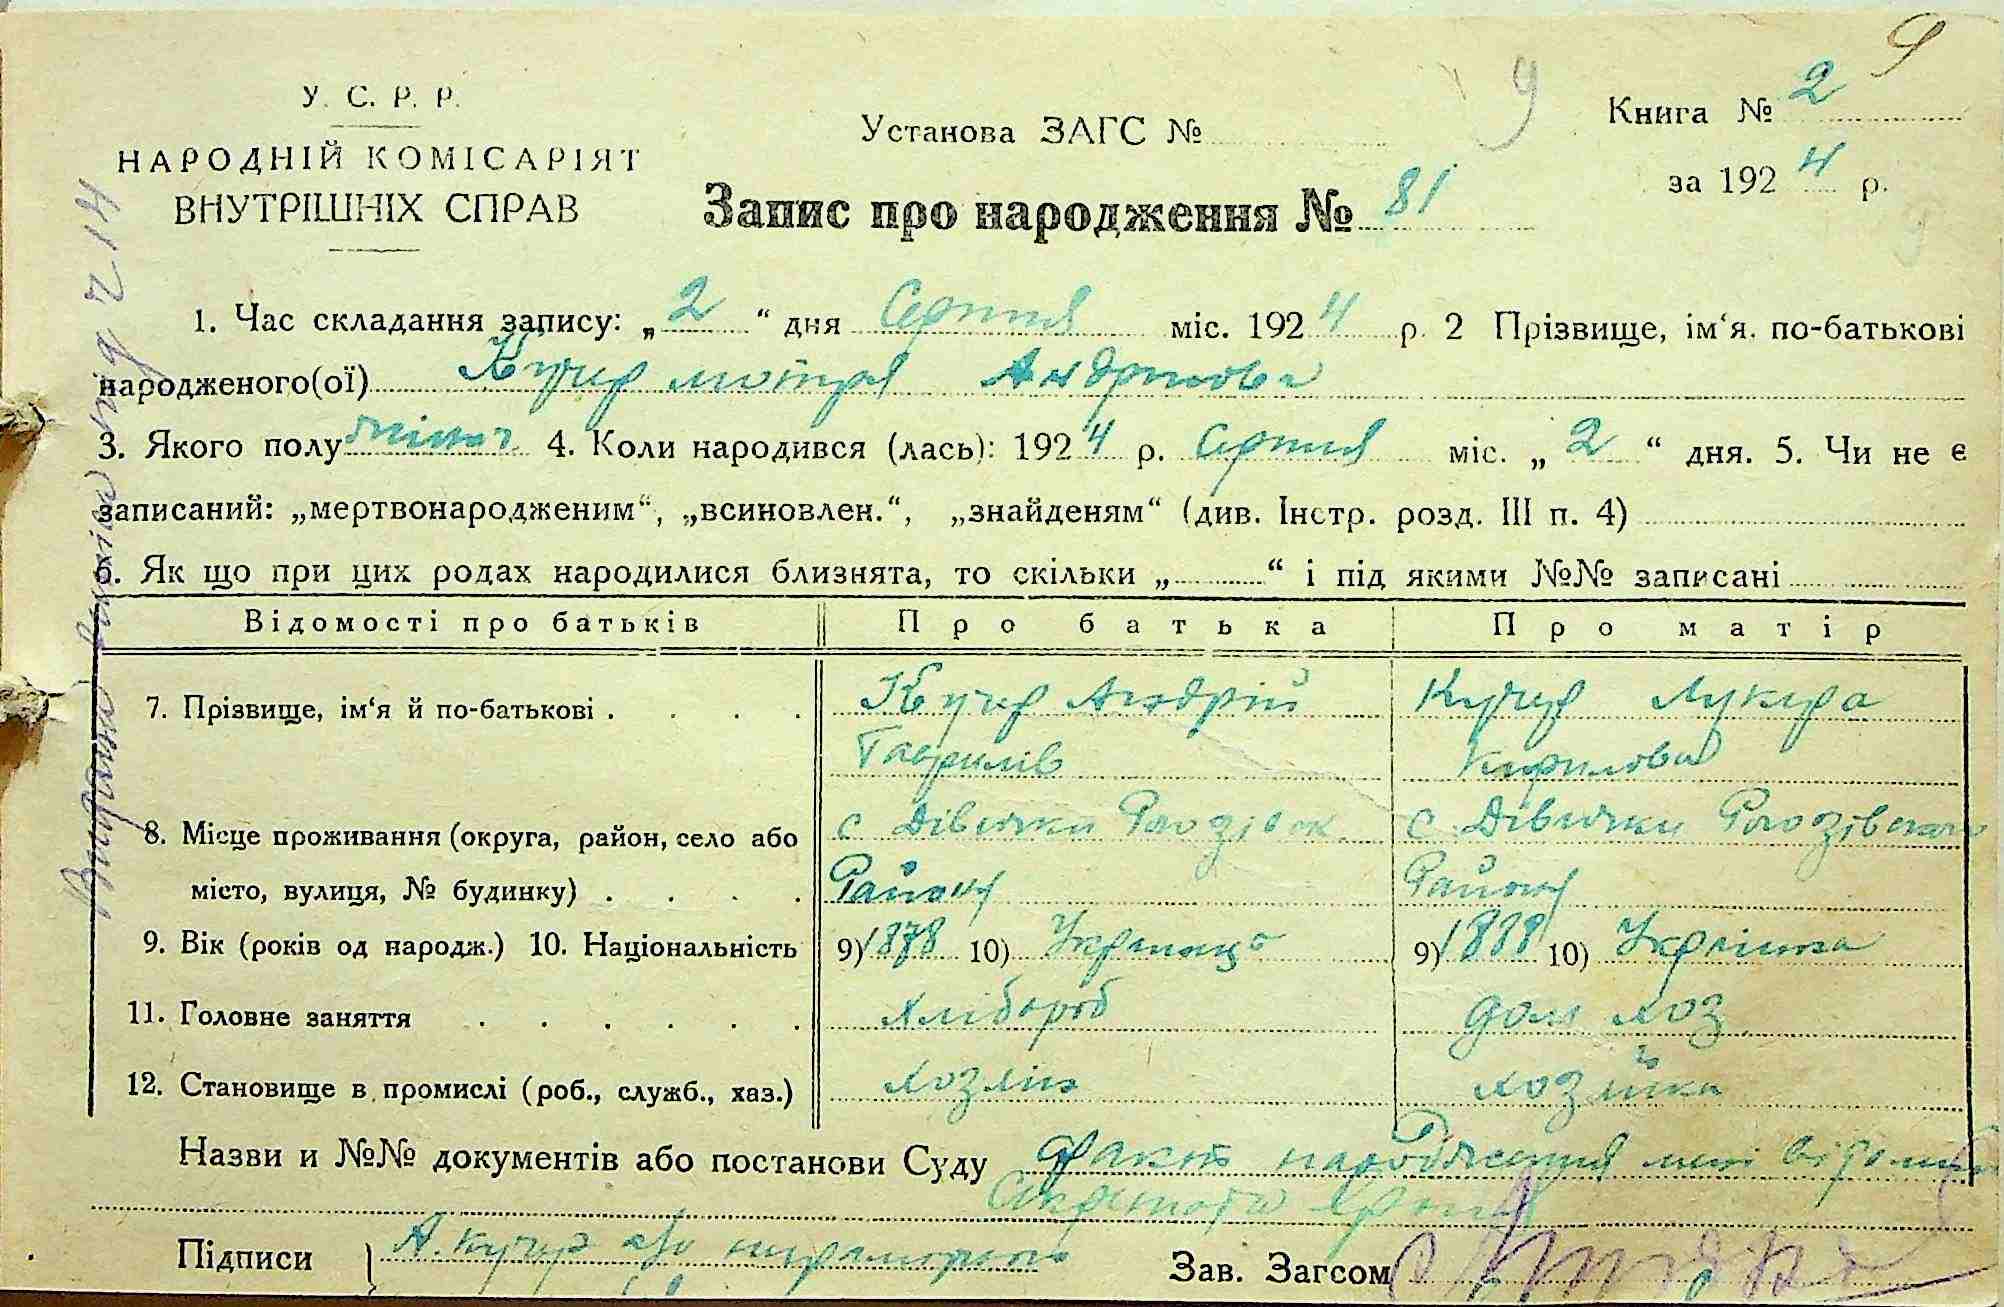 9
У. С. Р. Р.
НАРОДНІЙ КОМІСАРІЯТ
ВНУТРІШНІХ СПРАВ
Установа ЗАГС №
9
Книга № 2
за 1924 р.
Запис про народження № 81
1. Час складання запису: „2“ дня Серпня міс. 1924 р. 2 Прізвище, ім‘я. по-батькові
народженого(ої) Кучер мотря Андріюва
3. Якого полу жіноч. 4. Коли народився (лась): 1924 р. Серпня міс. „2“ дня. 5. Чи не є
записаний: „мертвонародженим“, „всиновлен.“, „знайденям“ (див. Інстр. розд. III п. 4)
6. Як що при цих родах народилися близнята, то скільки „ “ і під якими №№ записані
Відомості про батьків Про батька Про матір
7. Прізвище, ім‘я й по-батькові . . . . Кучер Андрій Кучер Лукера
Гаврилів Кирилова
8. Місце проживання (округа, район, село або с Дівички Рогозівск с Дівички Рогозівского
місто, вулиця, № будинку) . . . . Району Району
9. Вік (років од народж.) 10. Національність 9) 1878 10) Українцо 9) 1888 10) Українка
11. Головне заняття . . . . . . хлібороб дом хоз
12. Становище в промислі (роб., служб., хаз.) хозяін хозяйка
Назви и №№ документів або постанови Суду Факт народження мені відомий
Підписи А. кучер або неграмотного Зав. Загсом
Видано від ч 14